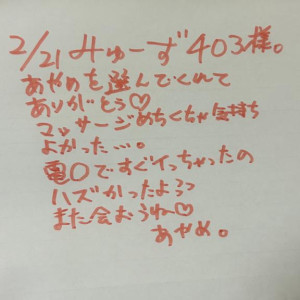 2/21 みゅーず403様。
あやめを選んでくれて
ありがとう♡
マッサージめちくちゃ気持ち
よかった…。
電〇ですぐイっちゃったの
ハズかったよぅっ
また会おうね♡
あやめ。